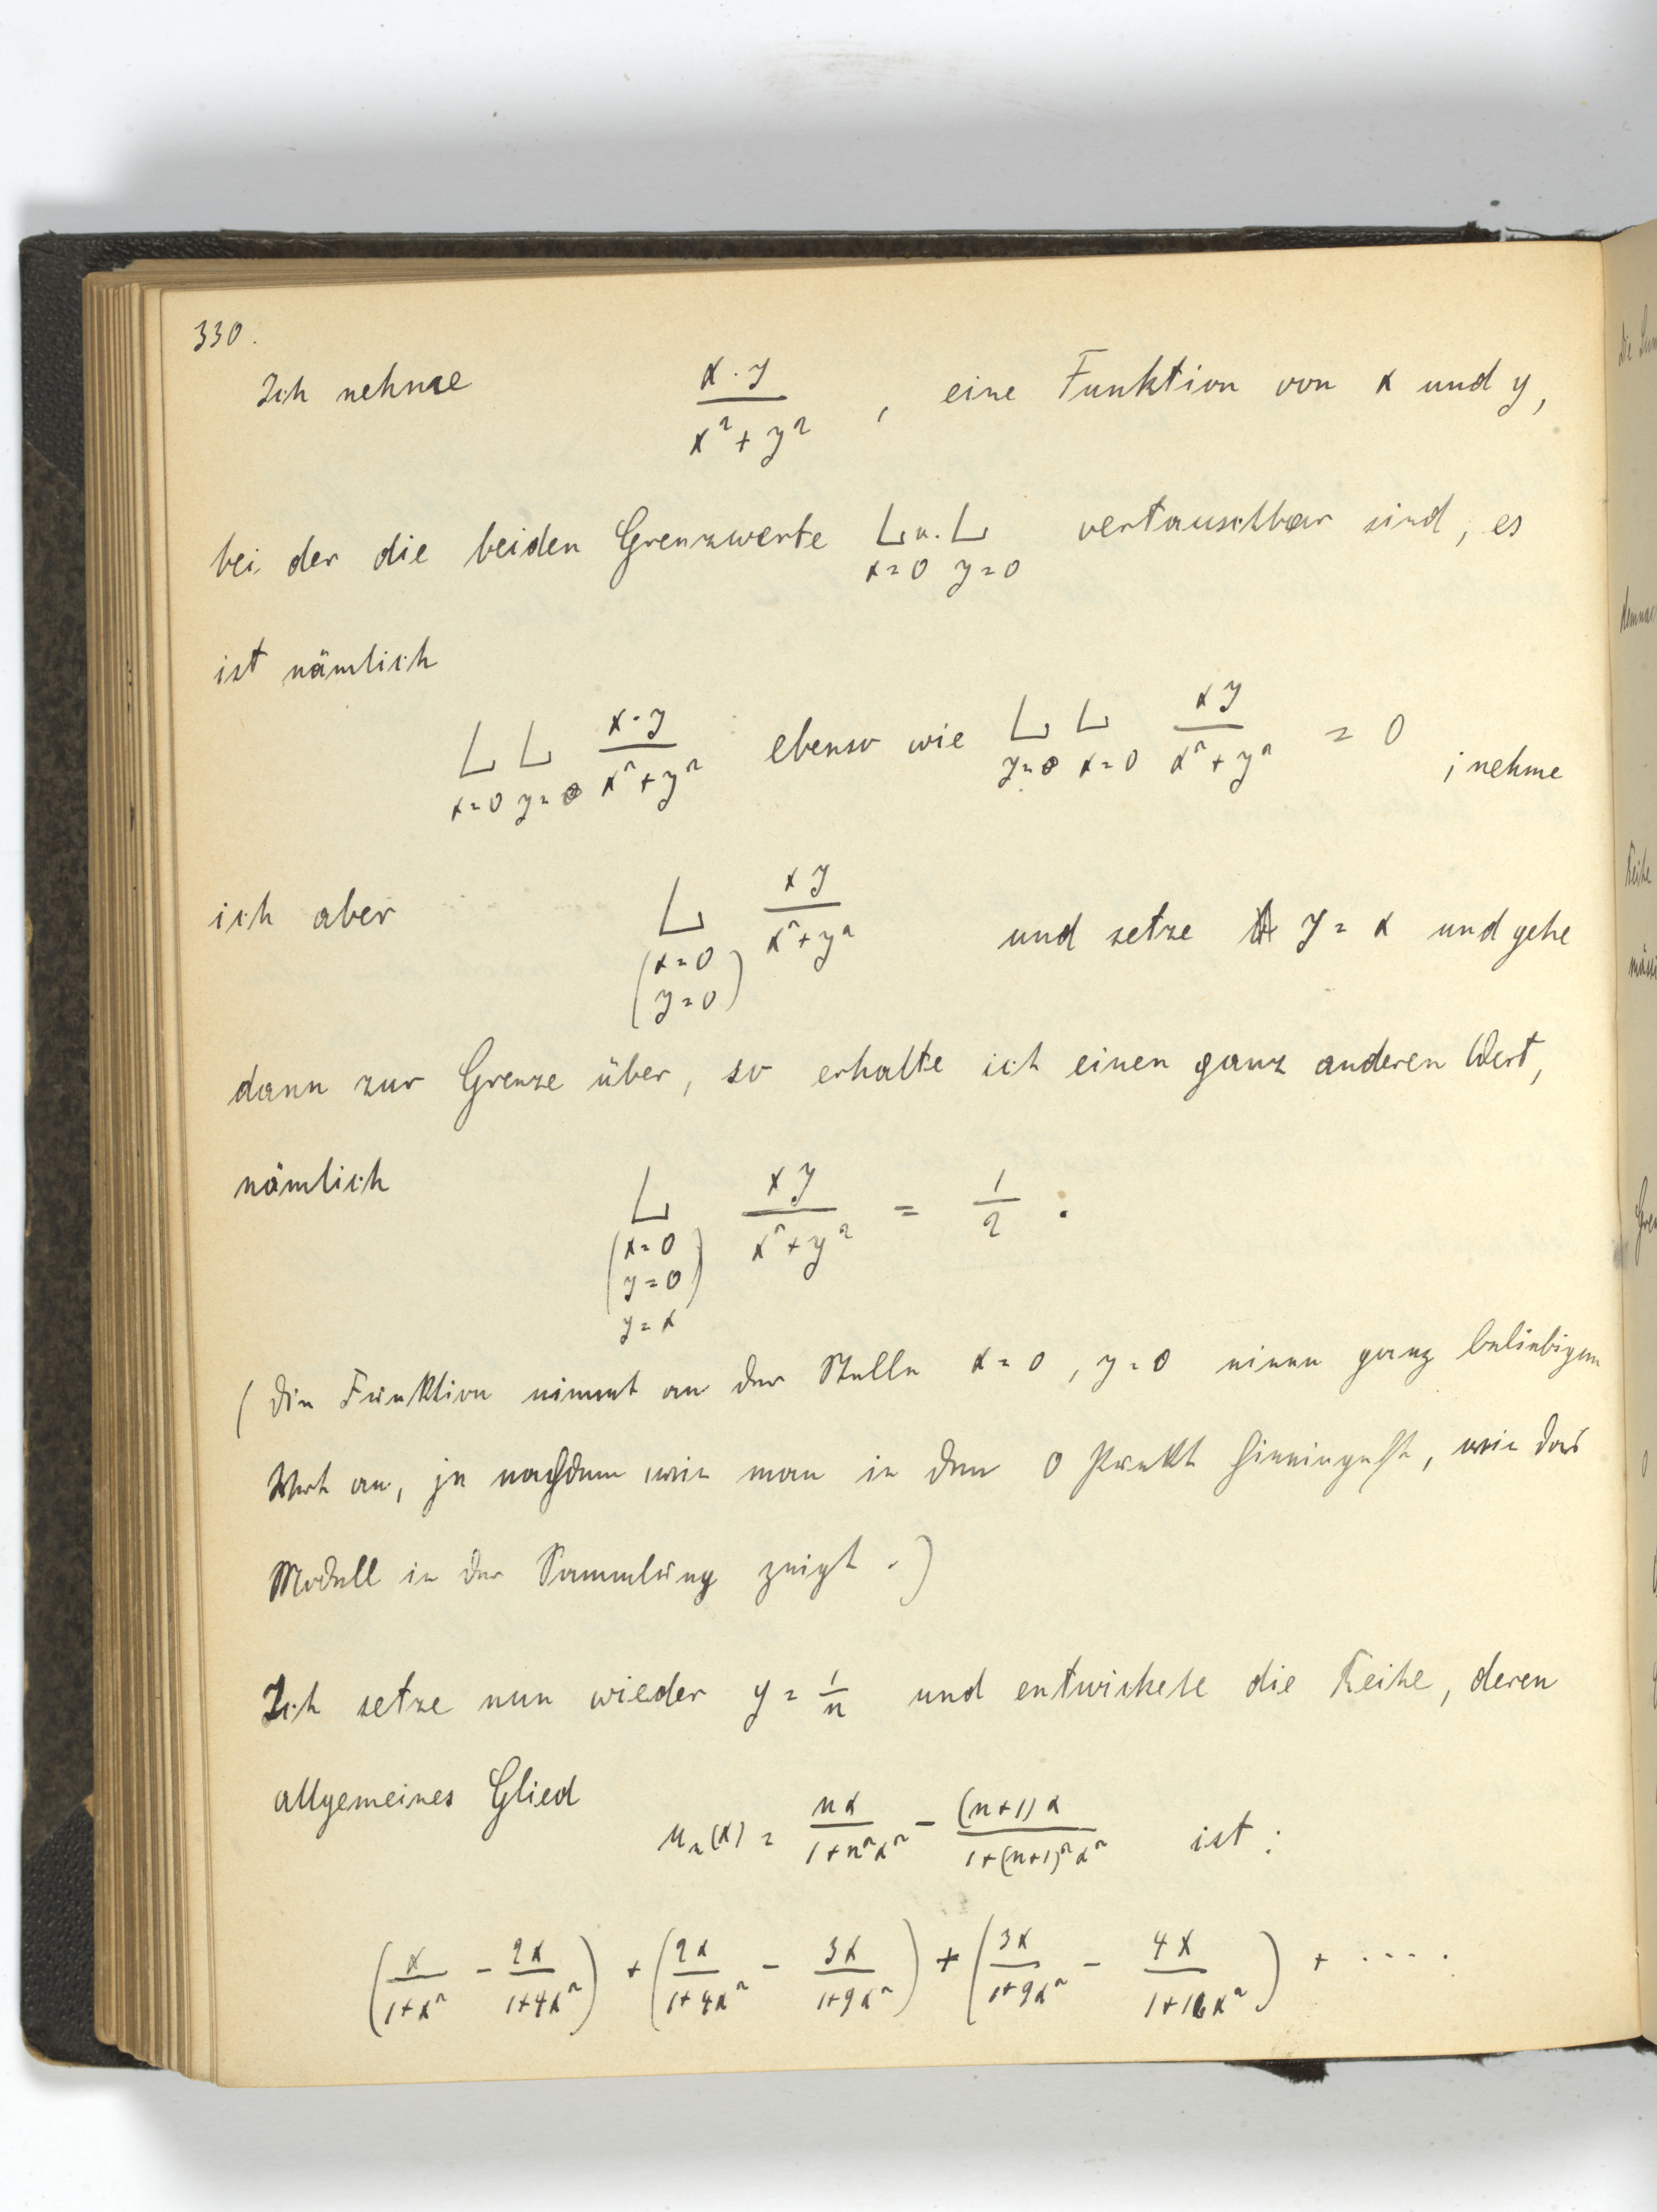 330.
Ich nehme x·y / x²+y² , eine Funktion von x und y,
bei der die beiden Grenzwerte L x=0 u. L y=0 vertauschbar sind; es
ist nämlich
L x=0 L y=0 x·y / x²+y² ebenso wie L y=0 L x=0 xy / x²+y² = 0 ; nehme
ich aber L (x=0 y=0) xy / x²+y² und setze y = x und gehe
dann zur Grenze über, so erhalte ich einen ganz anderen Wert,
nämlich L (x=0 y=0) y=x xy / x²+y² = 1/2 .
(Die Funktion nimmt an der Stelle x=0, y=0 einen ganz beliebigen
Wert an, je nachdem wie man in den 0 Punkt hineingeht, wie das
Modell in der Sammlung zeigt.)
Ich setze nun wieder y = 1/n und entwickele die Reihe, deren
allgemeines Glied uₙ(x) = nx / 1+n²x² − (n+1)x / 1+(n+1)²x² ist:
(x / 1+x² − 2x / 1+4x²) + (2x / 1+4x² − 3x / 1+9x²) + (3x / 1+9x² − 4x / 1+16x²) + ....